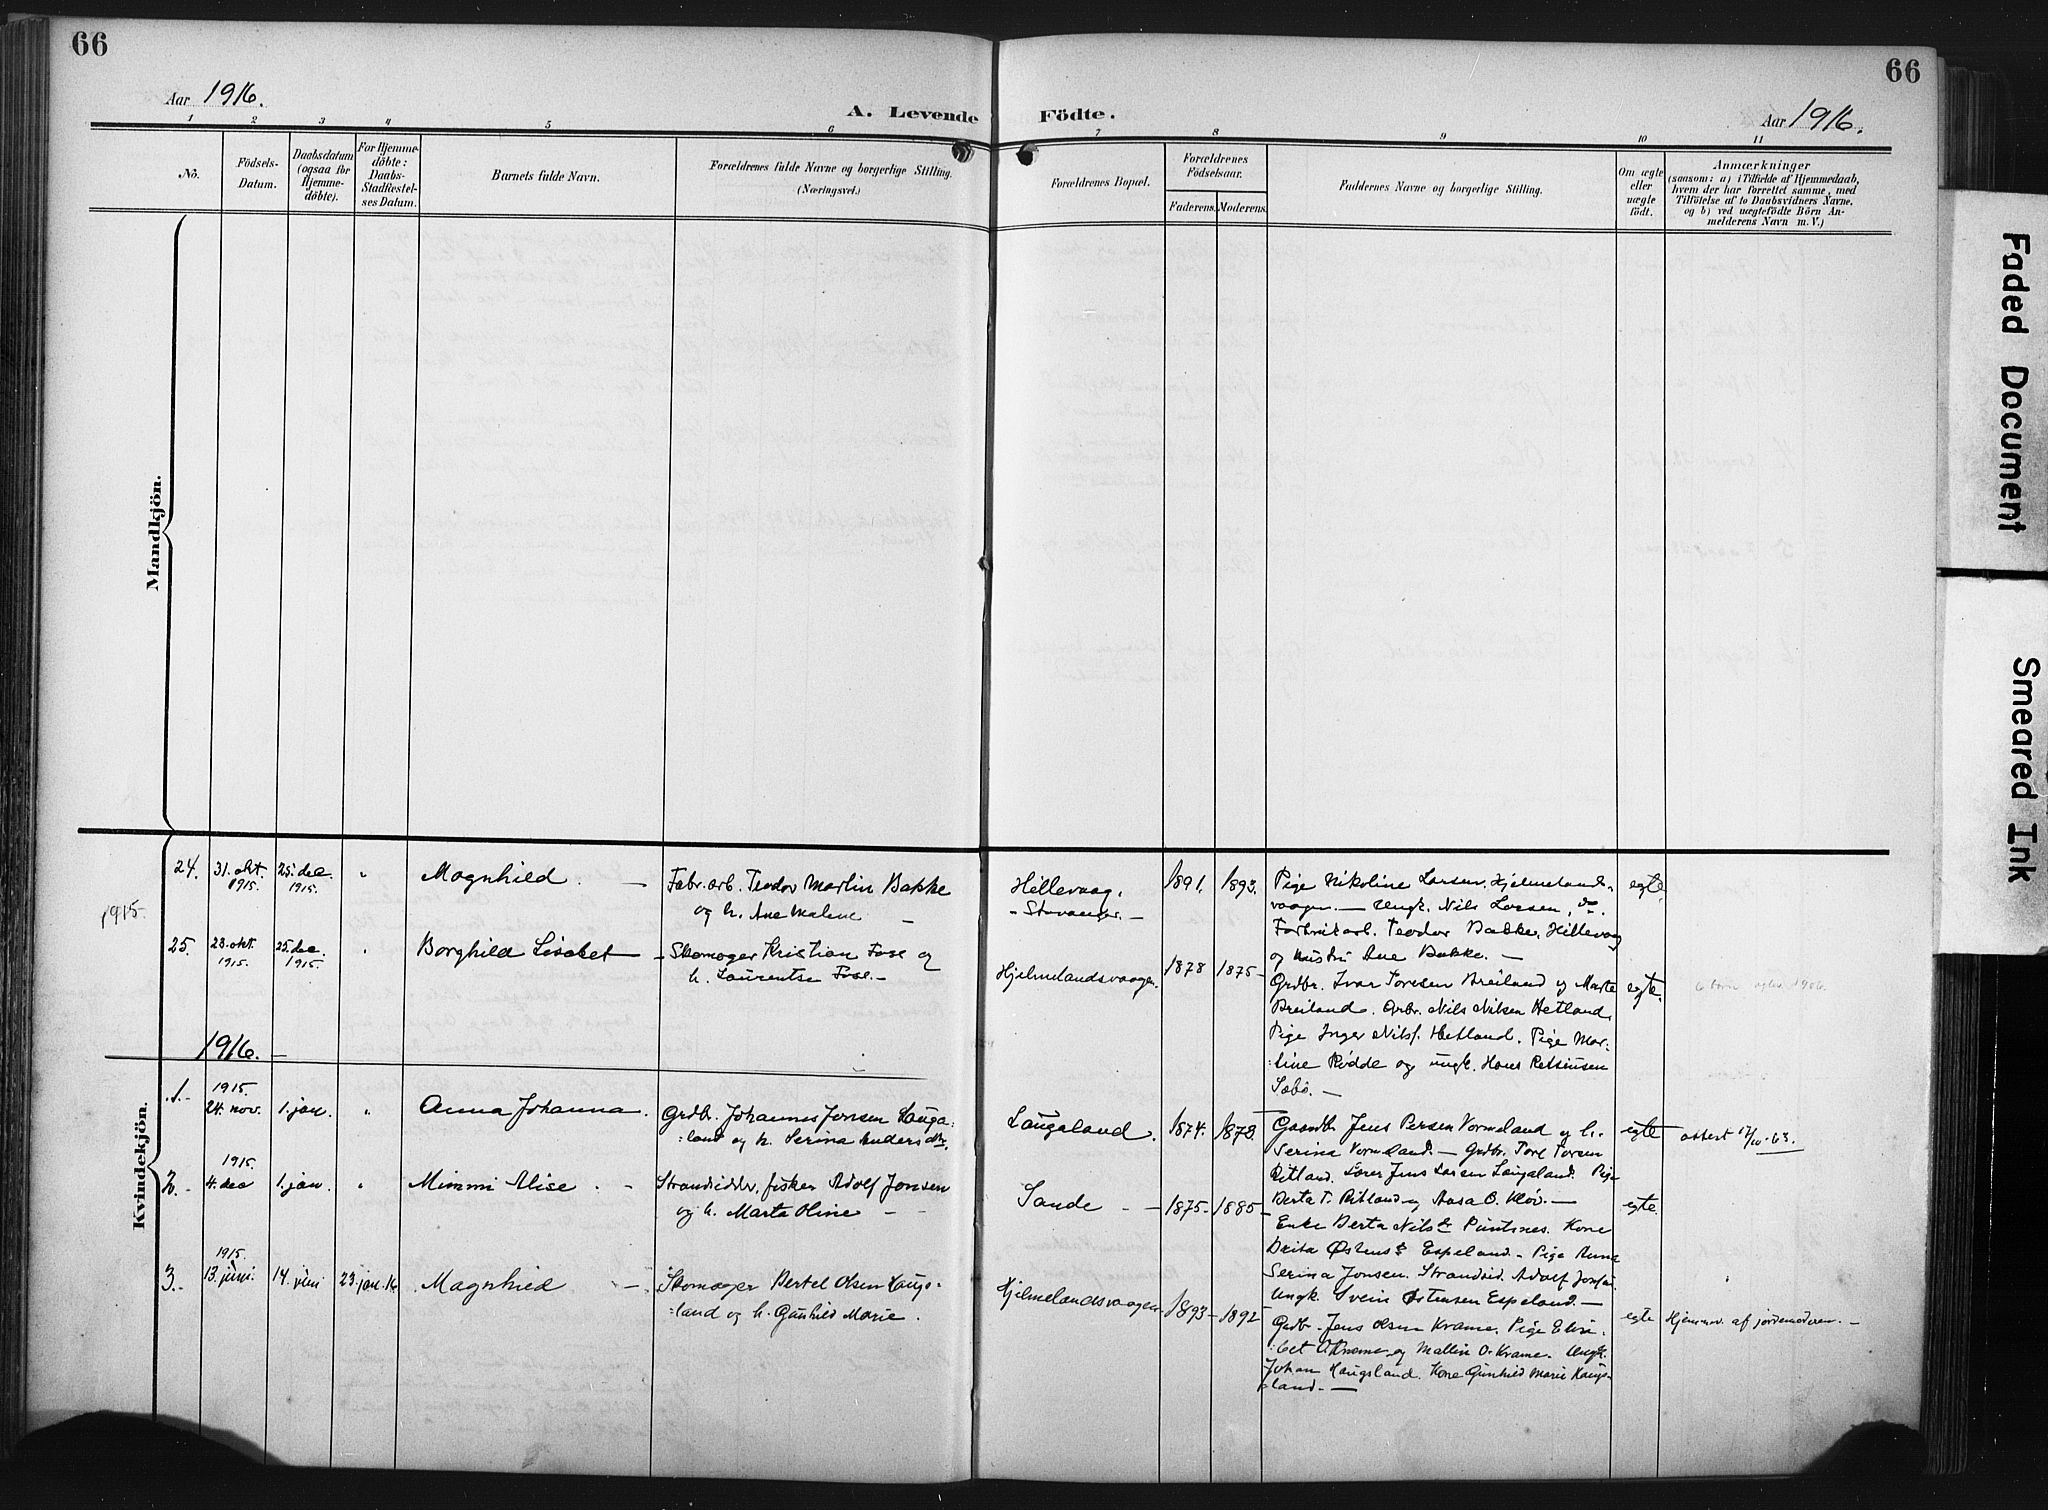 66
66
Aar 1916.
A. Levende Födte.
Aar 1916.
1 2 3 4 5 6 7 8 9 10 11
Nô.
Födsels-
Datum.
Daabsdatum
(ogsaa for
Hjemme-
döbte).
For Hjemme-
döbte:
Daabs-
Stadfæstel-
ses Datum.
Barnets fulde Navn.
Forældrenes fulde Navne og borgerlige Stilling.
(Næringsvei.)
Forældrenes Bopæl.
Forældrenes
Födselsaar.
Faderens. Moderens.
Faddernes Navne og borgerlige Stilling.
Om ægte
eller
uægte
födt.
Anmærkninger
(saasom: a) i Tilfælde af Hjemmedaab,
hvem der har forrettet samme, med
Tilföielse af to Daabsvidners Navne,
og b) ved uægtefödte Börn An-
melderens Navn m. V.)
Mandkjön.
Kvindekjön.
1915.
24.
31. okt.
1915.
25. dec.
1915.
"
Magnhild. —
Fabr. arb. Teodor Martin Bakke
og h. Ane Malene —
Hillevaag,
- Stavanger. —
1891.
1893.
Pige Nikoline Larsen, Hjelmelands-
vaagen. — Ungk. Nils Larsen, do.
Fabrikarb. Teodor Bakke, Hillevaag
og hustru Ane Bakke. —
egte.
25.
28. okt.
1915.
25. dec.
1915.
"
Borghild Lisabet —
Skomager Kristian Fose og
h. Laurentse Fose. —
Hjelmelandsvaagen.
1878
1875 -
Grdbr. Ivar Toresen Breiland og Marta
Breiland. Grbr. Nils Nilsen Hetland,
Pige Inger Nilsd. Hetland. Pige Mar-
tine Rødde og ungk. Hans
Sæbö. —
egte.
1916. —
1. -
1915.
24. nov.
1. jan.
"
Anna Johanna.
Grdbr. Johannes Jonsen Lauga-
land og h. Serina Andersdtr.
Laugaland.
1874.
1878.
Gaardbr. Jens Persen Vormeland og h.
Serina Vormeland. — Grdbr. Tore Torsen
Ritland. Lærer Jens Larsen Laugaland. Pige
Berta T. Ritland og Aasa O. —
egte
attest 63.
2. -
1915.
4. dec
1. jan.
"
Mimmi Alise. -
Strandsidder, fisker Adolf Jonsen
og h. Marta Oline —
Sande —
1875 -
1885 -
Enke Berta Nilsdtr. Puntsnes. Kone
Brita Østensdtr. Espeland. - Pige Anna
Serina Jonsen. Strandsid. Adolf Jonsen.
Ungk. Svein Østensen Espeland. —
egte.
3. -
1915.
13. juni.
14. juni
23. jan. 16
Magnhild —
Skomager Bertel Olsen Haugs-
land og h. Gunhild Marie.
Hjelmelandsvaagen
1893 -
1892
Grdbr. Jens Olsen Krame. Pige Elisa-
bet Krame og Mallin O. Krame. Ungk.
Johan Haugsland. Kone Gunhild Marie Haugs-
land. —
egte
Hjemmed. af jordmoderen. —
Faded Document
Smeared Ink